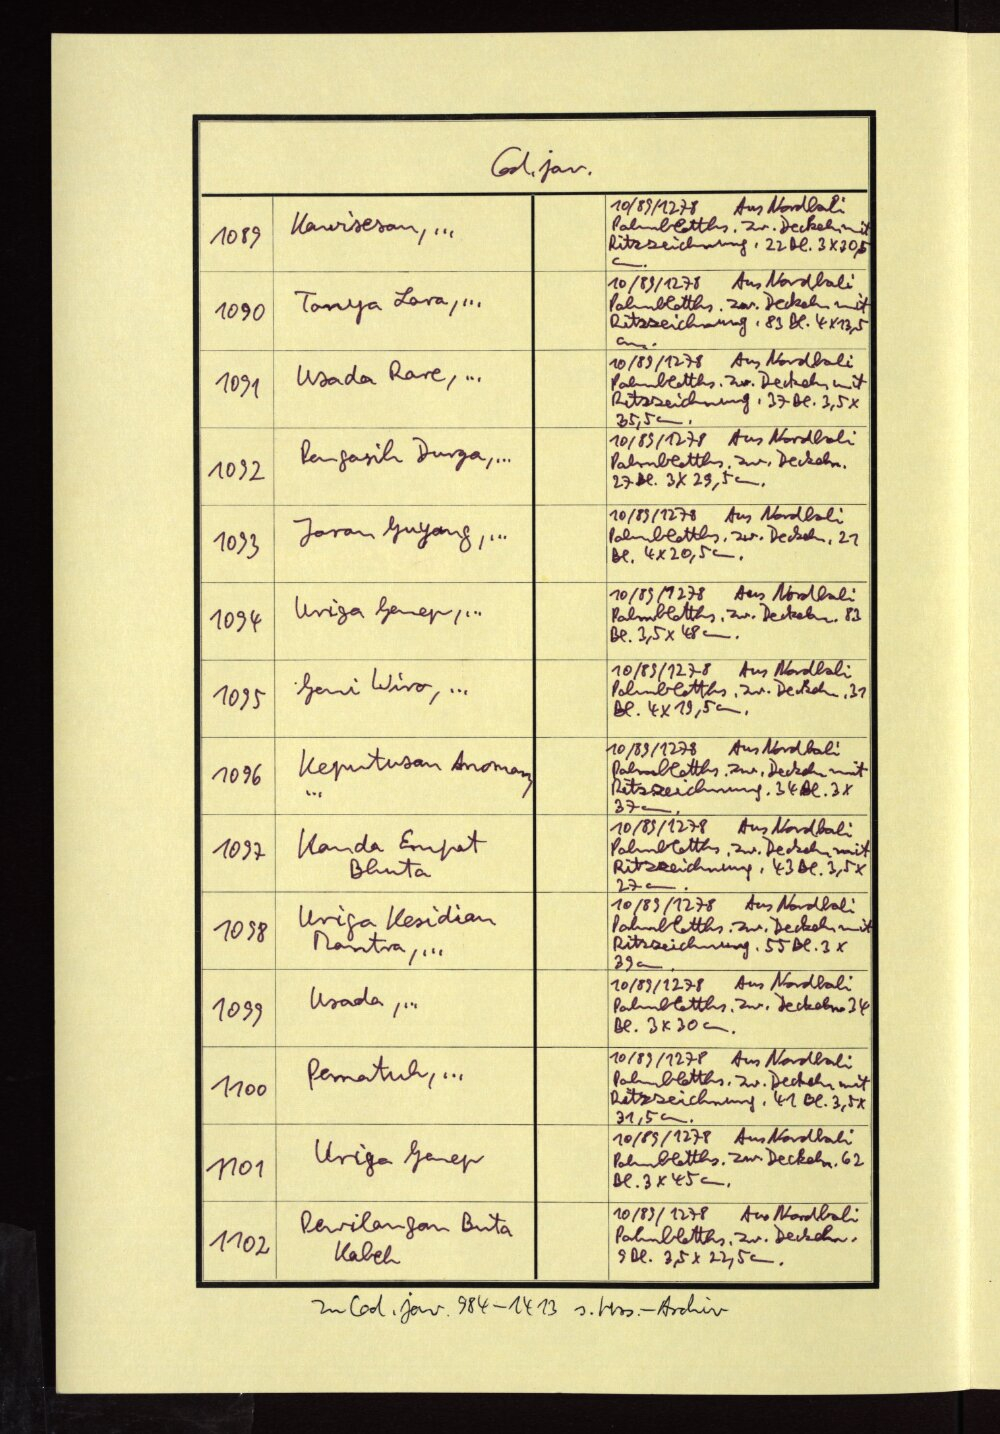 Cod. jav.
1089
Kawisesan, ...
10/89/1278 Aus Nordbali
Palmblatths. zw. Deckeln mit
Ritzzeichnung. 22 Bl. 3 x 30,5
cm.
1090
Tanya Lara, ...
10/89/1278 Aus Nordbali
Palmblatths. zw. Deckeln mit
Ritzzeichnung. 83 Bl. 4 x 13,5
cm.
1091
Usada Rare, ...
10/89/1278 Aus Nordbali
Palmblatths. zw. Deckeln mit
Ritzzeichnung. 37 Bl. 3,5 x
35,5 cm.
1092
Pengasih Durga, ...
10/89/1278 Aus Nordbali
Palmblatths. zw. Deckeln.
27 Bl. 3 x 29,5 cm.
1093
Jaran Guyang, ...
10/89/1278 Aus Nordbali
Palmblatths. zw. Deckeln. 21
Bl. 4 x 20,5 cm.
1094
Uriga Genep, ...
10/89/1278 Aus Nordbali
Palmblatths. zw. Deckeln. 83
Bl. 3,5 x 48 cm.
1095
Geni Wiro, ...
10/89/1278 Aus Nordbali
Palmblatths. zw. Deckeln. 31
Bl. 4 x 19,5 cm.
1096
Keputusan Anoman,
...
10/89/1278 Aus Nordbali
Palmblatths. zw. Deckeln mit
Ritzzeichnung. 34 Bl. 3 x
37 cm.
1097
Kanda Empat
Bhuta
10/89/1278 Aus Nordbali
Palmblatths. zw. Deckeln mit
Ritzzeichnung. 43 Bl. 3,5 x
27 cm.
1098
Uriga Kesidian
Mantra, ...
10/89/1278 Aus Nordbali
Palmblatths. zw. Deckeln mit
Ritzzeichnung. 55 Bl. 3 x
39 cm.
1099
Usada, ...
10/89/1278 Aus Nordbali
Palmblatths. zw. Deckeln. 34
Bl. 3 x 30 cm.
1100
Pematuh, ...
10/89/1278 Aus Nordbali
Palmblatths. zw. Deckeln mit
Ritzzeichnung. 41 Bl. 3,5 x
31,5 cm.
1101
Uriga Genep
10/89/1278 Aus Nordbali
Palmblatths. zw. Deckeln. 62
Bl. 3 x 45 cm.
1102
Pewilangan Buta
Kabeh
10/89/1278 Aus Nordbali
Palmblatths. zw. Deckeln.
9 Bl. 3,5 x 22,5 cm.
zu Cod. jav. 984-1413 s. Hss.-Archiv